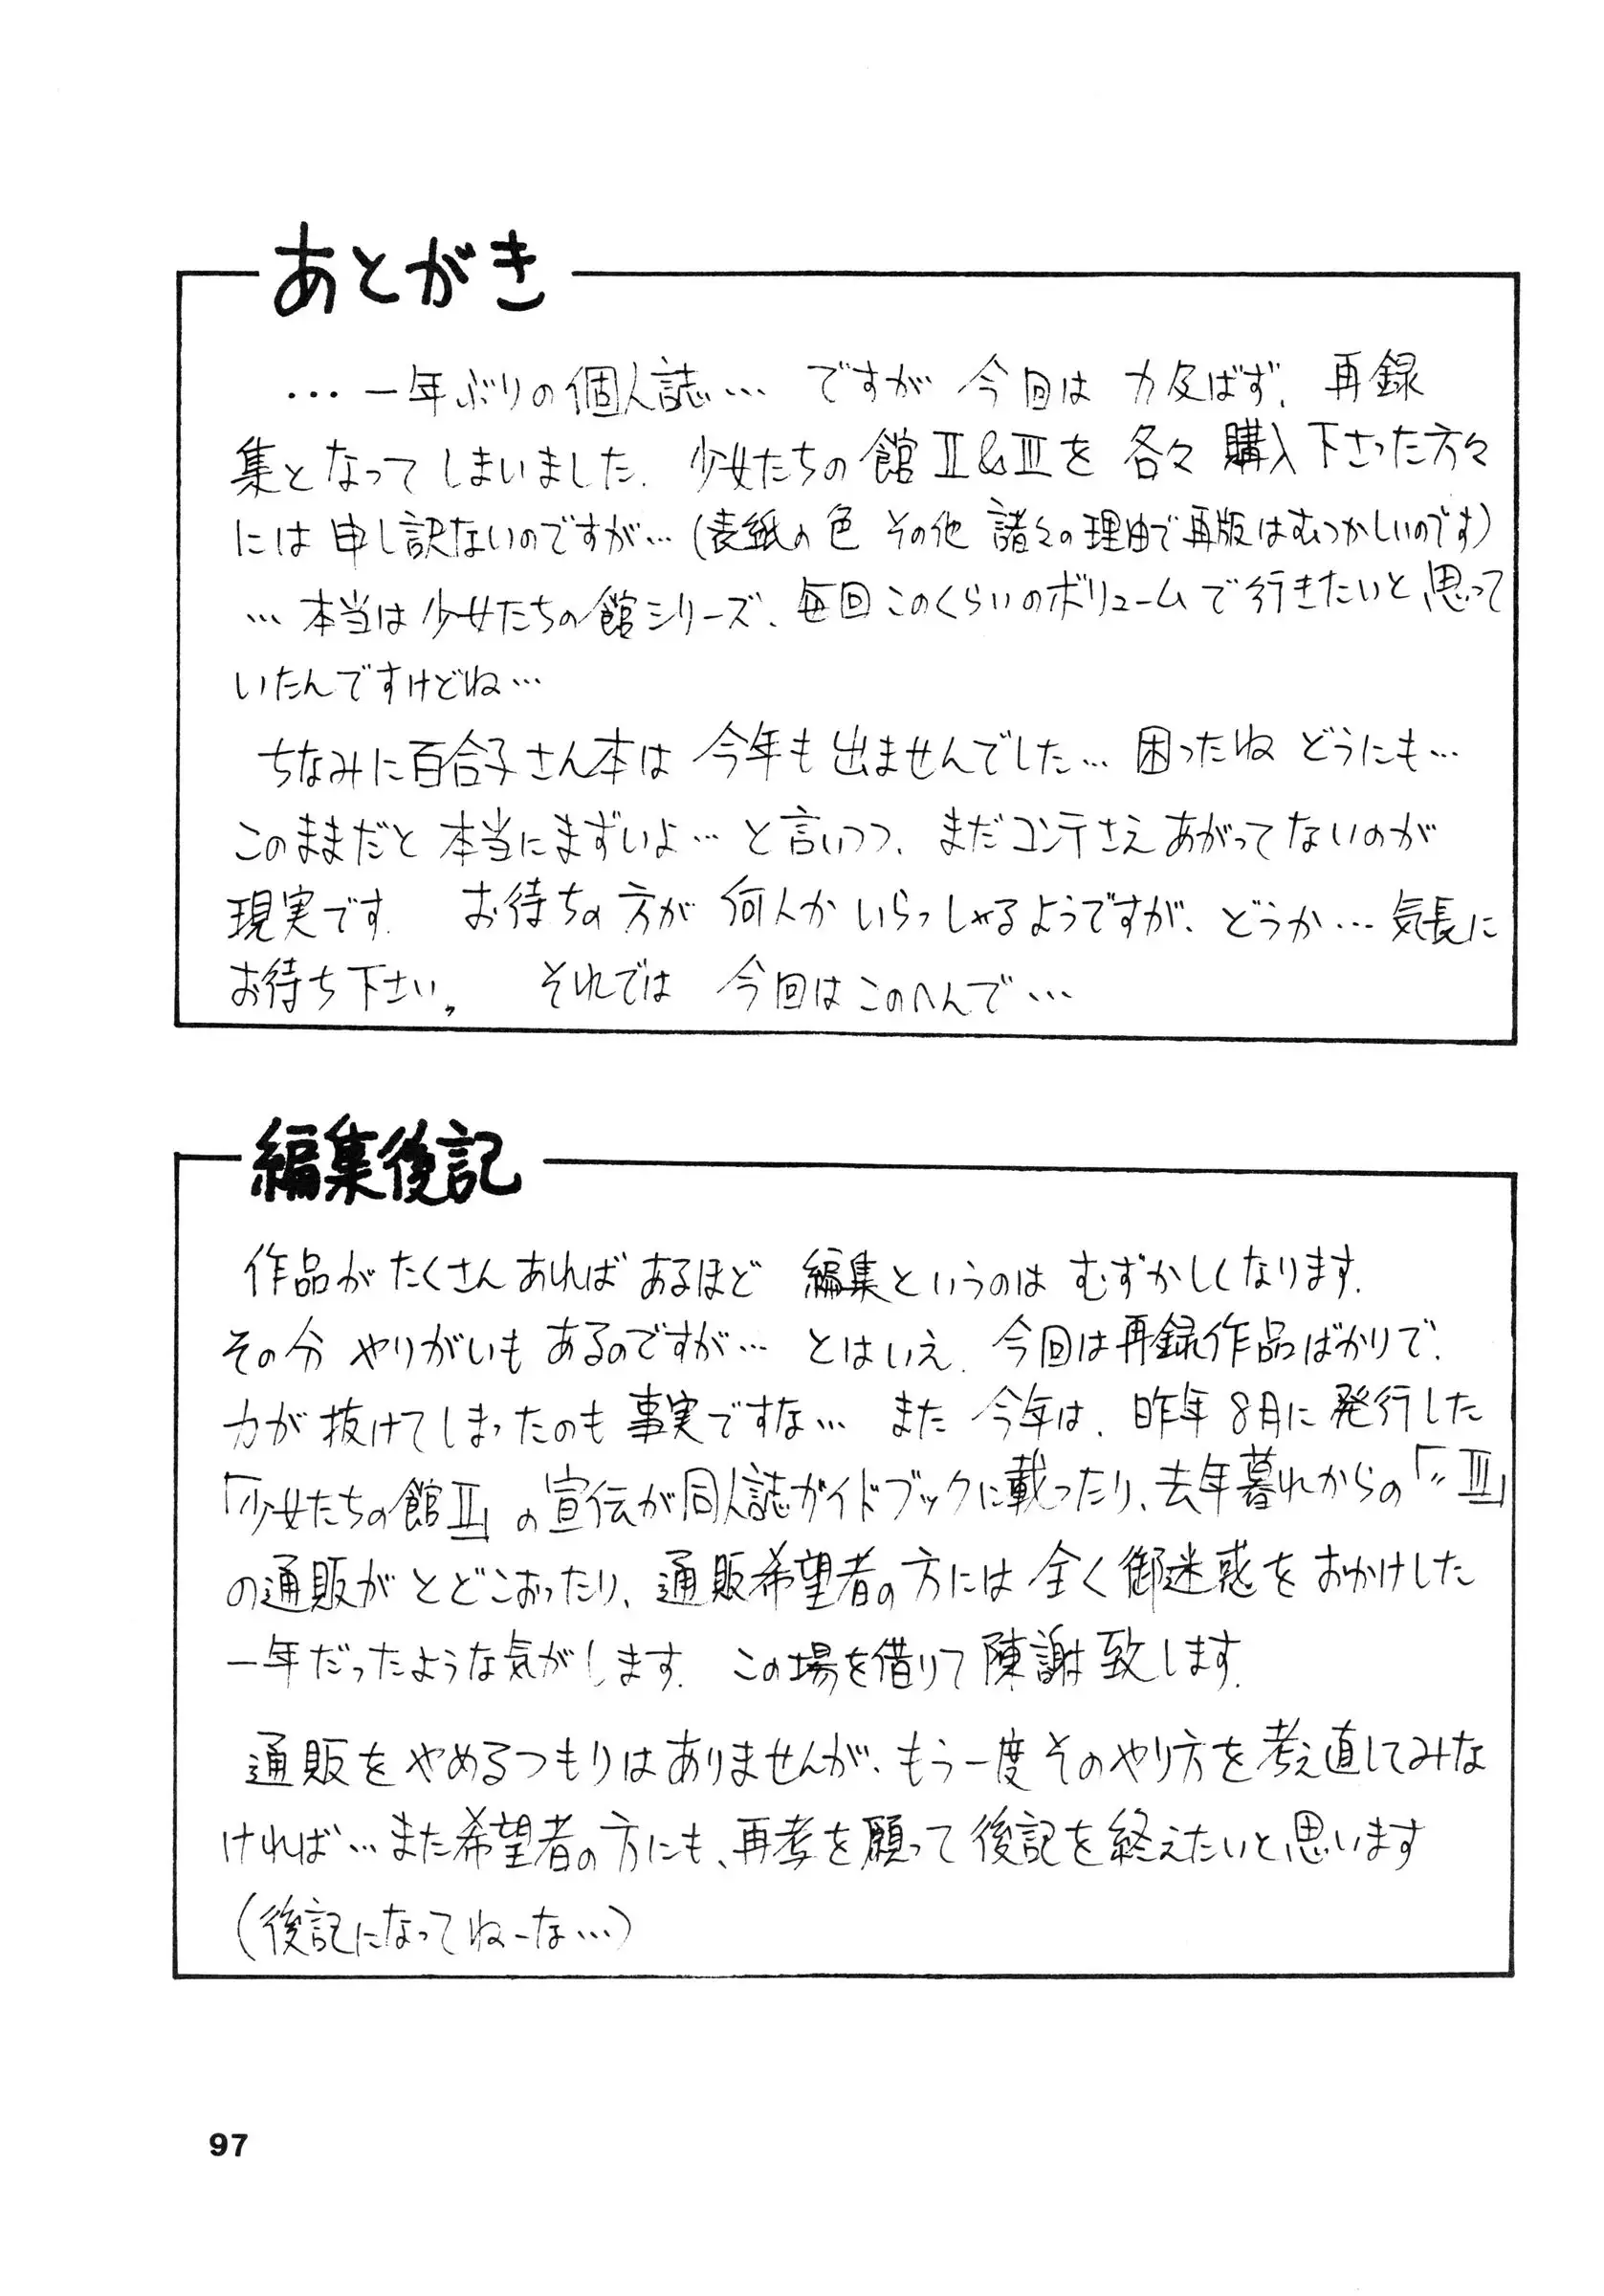 あとがき
…一年ぶりの個人誌… ですが 今回は 力及ばず、再録
集となってしまいました. 少女たちの館Ⅱ&Ⅲを 各々 購入下さった方々
には 申し訳ないのですが…(表紙の色 その他 諸々の理由で再版はむつかしいのです)
…本当は少女たちの館シリーズ、毎回このくらいのボリュームで行きたいと思って
いたんですけどね…
ちなみに百合子さん本は 今年も出ませんでした… 困ったね どうにも…
このままだと 本当にまずいよ… と言いつつ、まだコンテさえあがってないのが
現実です. お待ちの方が 何人かいらっしゃるようですが、どうか…気長に
お待ち下さい。 それでは 今回はこのへんで…
編集後記
作品がたくさんあればあるほど 編集というのは むずかしくなります.
その分 やりがいも あるのですが… とはいえ. 今回は再録作品ばかりで、
力が抜けてしまったのも事実ですな… また 今年は、昨年8月に発行した
「少女たちの館Ⅱ」の宣伝が同人誌ガイドブックに載ったり、去年暮れからの「〃Ⅲ」
の通販がとどこおったり、通販希望者の方には全く御迷惑をおかけした
一年だったような気がします. この場を借りて陳謝致します.
通販をやめるつもりはありませんが、もう一度そのやり方を考え直してみな
ければ…また希望者の方にも、再考を願って後記を終えたいと思います
(後記になってねーな…)
97